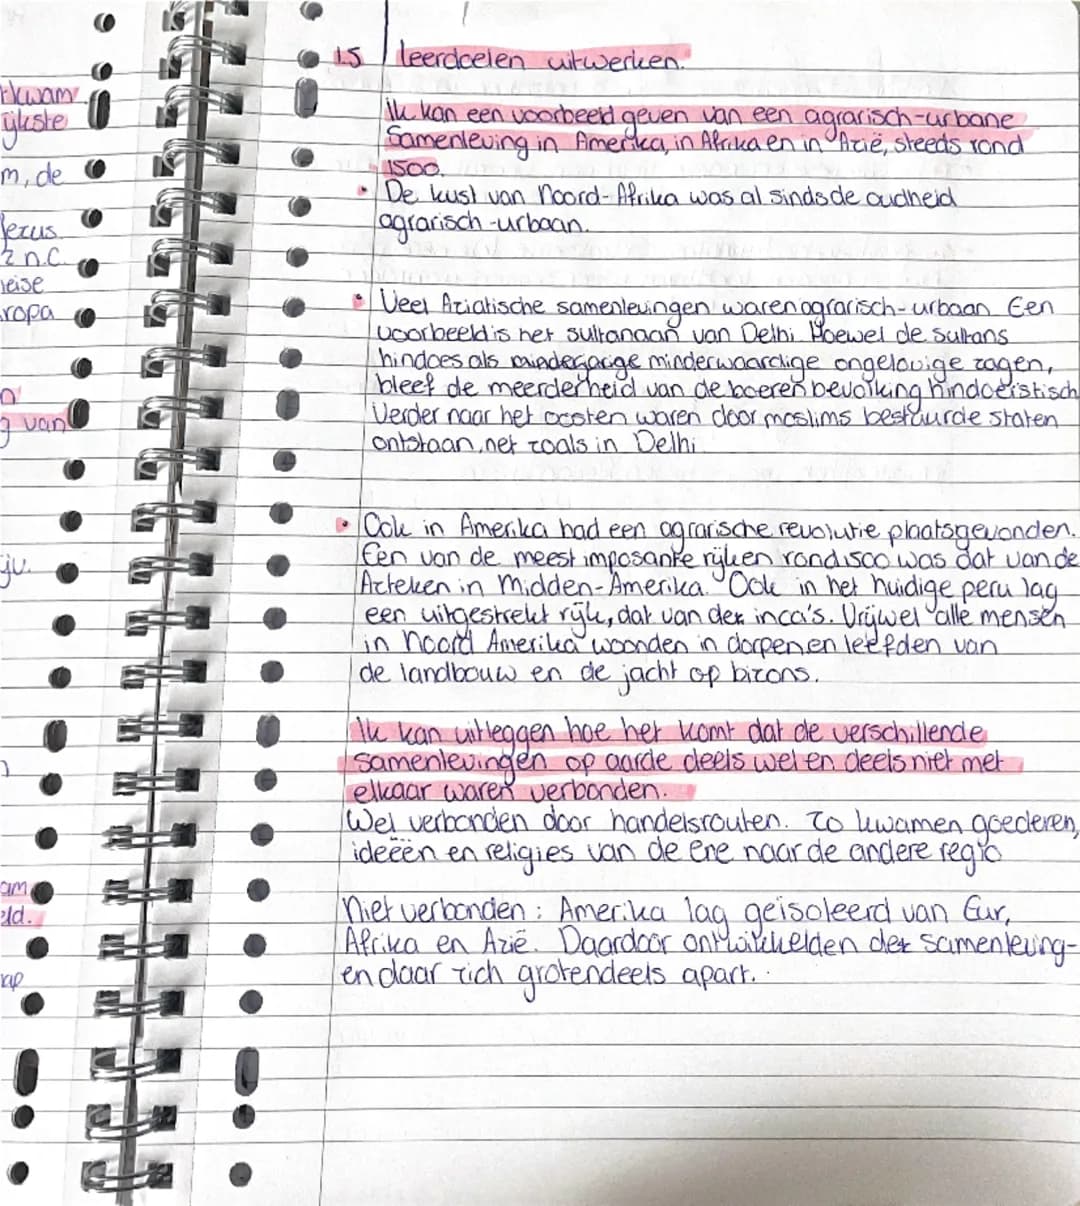 rkwam
ijkste
m, de
Jezus
2 n.C.
ropa
n
g van
am
eld.
rap
1.5 leerdoelen uitwerken.
Ik kan een voorbeeld geven van een agrarisch-urbane
Samenleving in Amerika, in Afrika en in Azië, steeds rond
1500.
• De kust van Noord-Afrika was al sinds de oudheid
agrarisch-urbaan.
• Veel Aziatische samenlevingen waren agrarisch-urbaan Een
voorbeeld is het sultanaan van Delhi Hoewel de sultans
hindoes als minderjarige minderwaardige ongelovige zagen,
bleef de meerderheid van de boeren bevolking hindoeistisch
Verder naar het oosten waren door moslims bestuurde staten
ontstaan, net zoals in Delhi
• Ook in Amerika had een agrarische revolutie plaatsgevonden.
Één van de meest imposante rijken rond 1500 was dat van de
Azteken in Midden-Amerika. Ook in het huidige peru lag
een uitgestrekt rijk, dat van der inca's. Vrijwel alle mensen
in Noord Amerika woonden in dorpen en leefden van
de landbouw en de jacht op bizons.
Ik kan uitleggen hoe het komt dat de verschillende
samenlevingen op aarde deels wel en deels niet met
elkaar waren verbonden.
Wel verbonden door handelsrouten. Zo kwamen goederen,
ideeën en religies van de ene naar de andere regio
Niet verbonden: Amerika lag geïsoleerd van Eur,
Afrika en Azië. Daardoor ontwikkelden der samenleving-
en daar zich grotendeels apart.